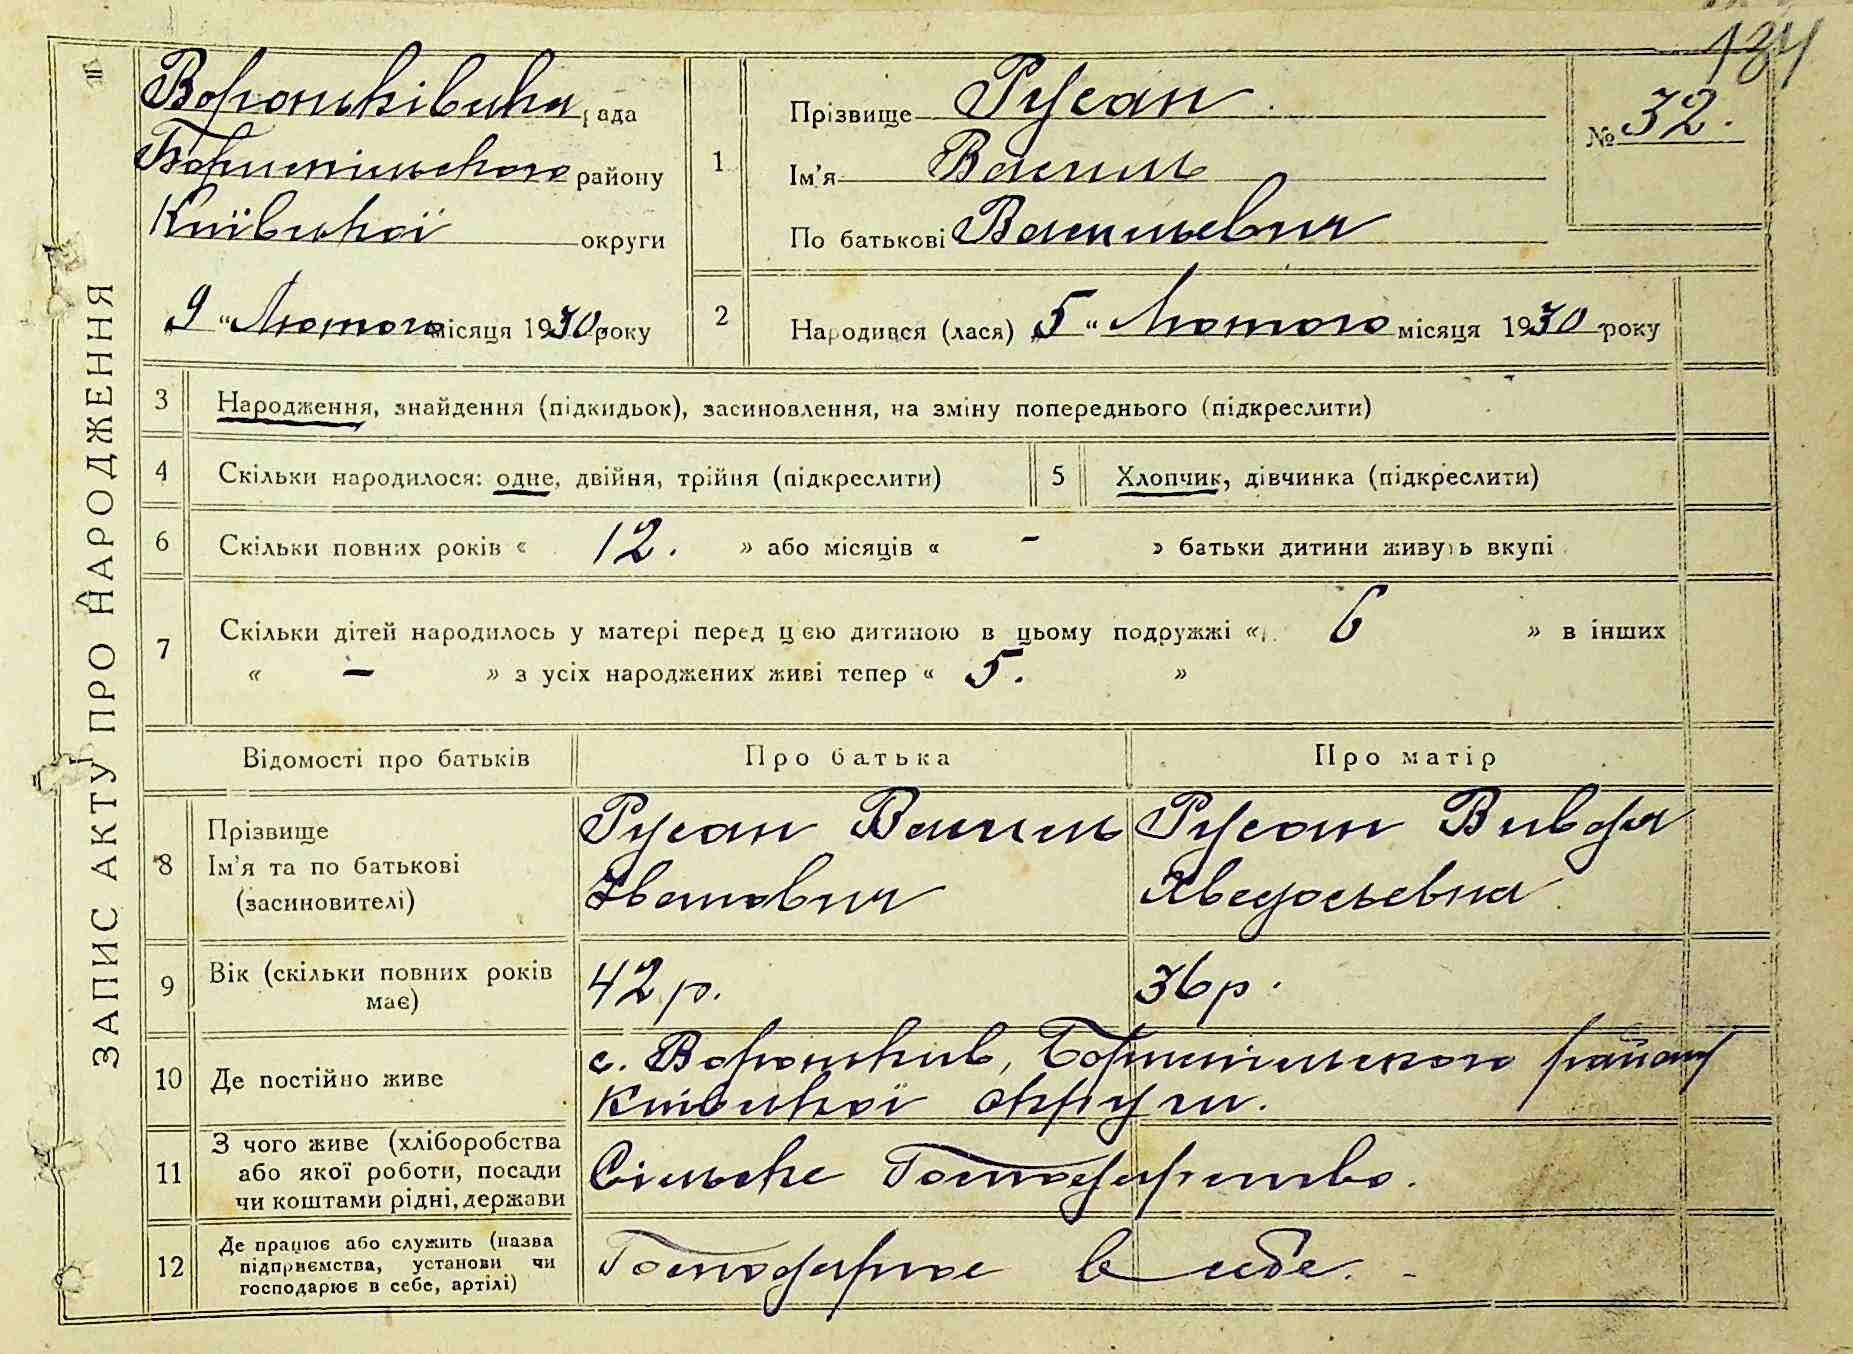 184
ЗАПИС АКТУ ПРО НАРОДЖЕННЯ
Вороньківська рада
Бориспільского району
Київської округи
„9 “ Лютого місяця 1930 року
1
Прізвище Русан
Ім'я Василь
По батькові Васильевич
№ 32.
2
Народився (лася) „5 “ Лютого місяця 1930 року
3 Народження, знайдення (підкидьок), засиновлення, на зміну попереднього (підкреслити)
4 Скільки народилося: одне, двійня, трійня (підкреслити)
5 Хлопчик, дівчинка (підкреслити)
6 Скільки повних років « 12. » або місяців « - » батьки дитини живуть вкупі
7 Скільки дітей народилось у матері перед цією дитиною в цьому подружжі « 6 » в інших
« – » з усіх народжених живі тепер « 5. »
Відомості про батьків Про батька Про матір
8 Прізвище
Ім'я та по батькові
(засиновителі)
Русан Василь
Іванович
Русан
9 Вік (скільки повних років
має)
42 р.
36 р.
10 Де постійно живе
с. Вороньків, Бориспільского району
Київської округи.
11 З чого живе (хліборобства
або якої роботи, посади
чи коштами рідні, держави
Сільске Господарство.
12 Де працює або служить (назва
підприємства, установи чи
господарює в себе, артілі)
Господарює в себе.